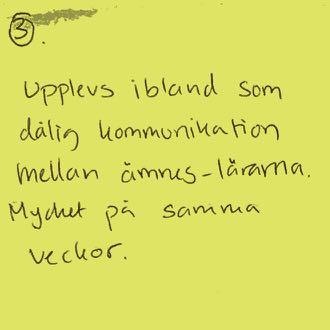 3.
Upplevs ibland som
dålig kommunikation
mellan ämnes-lärarna.
Mycket på samma
veckor.